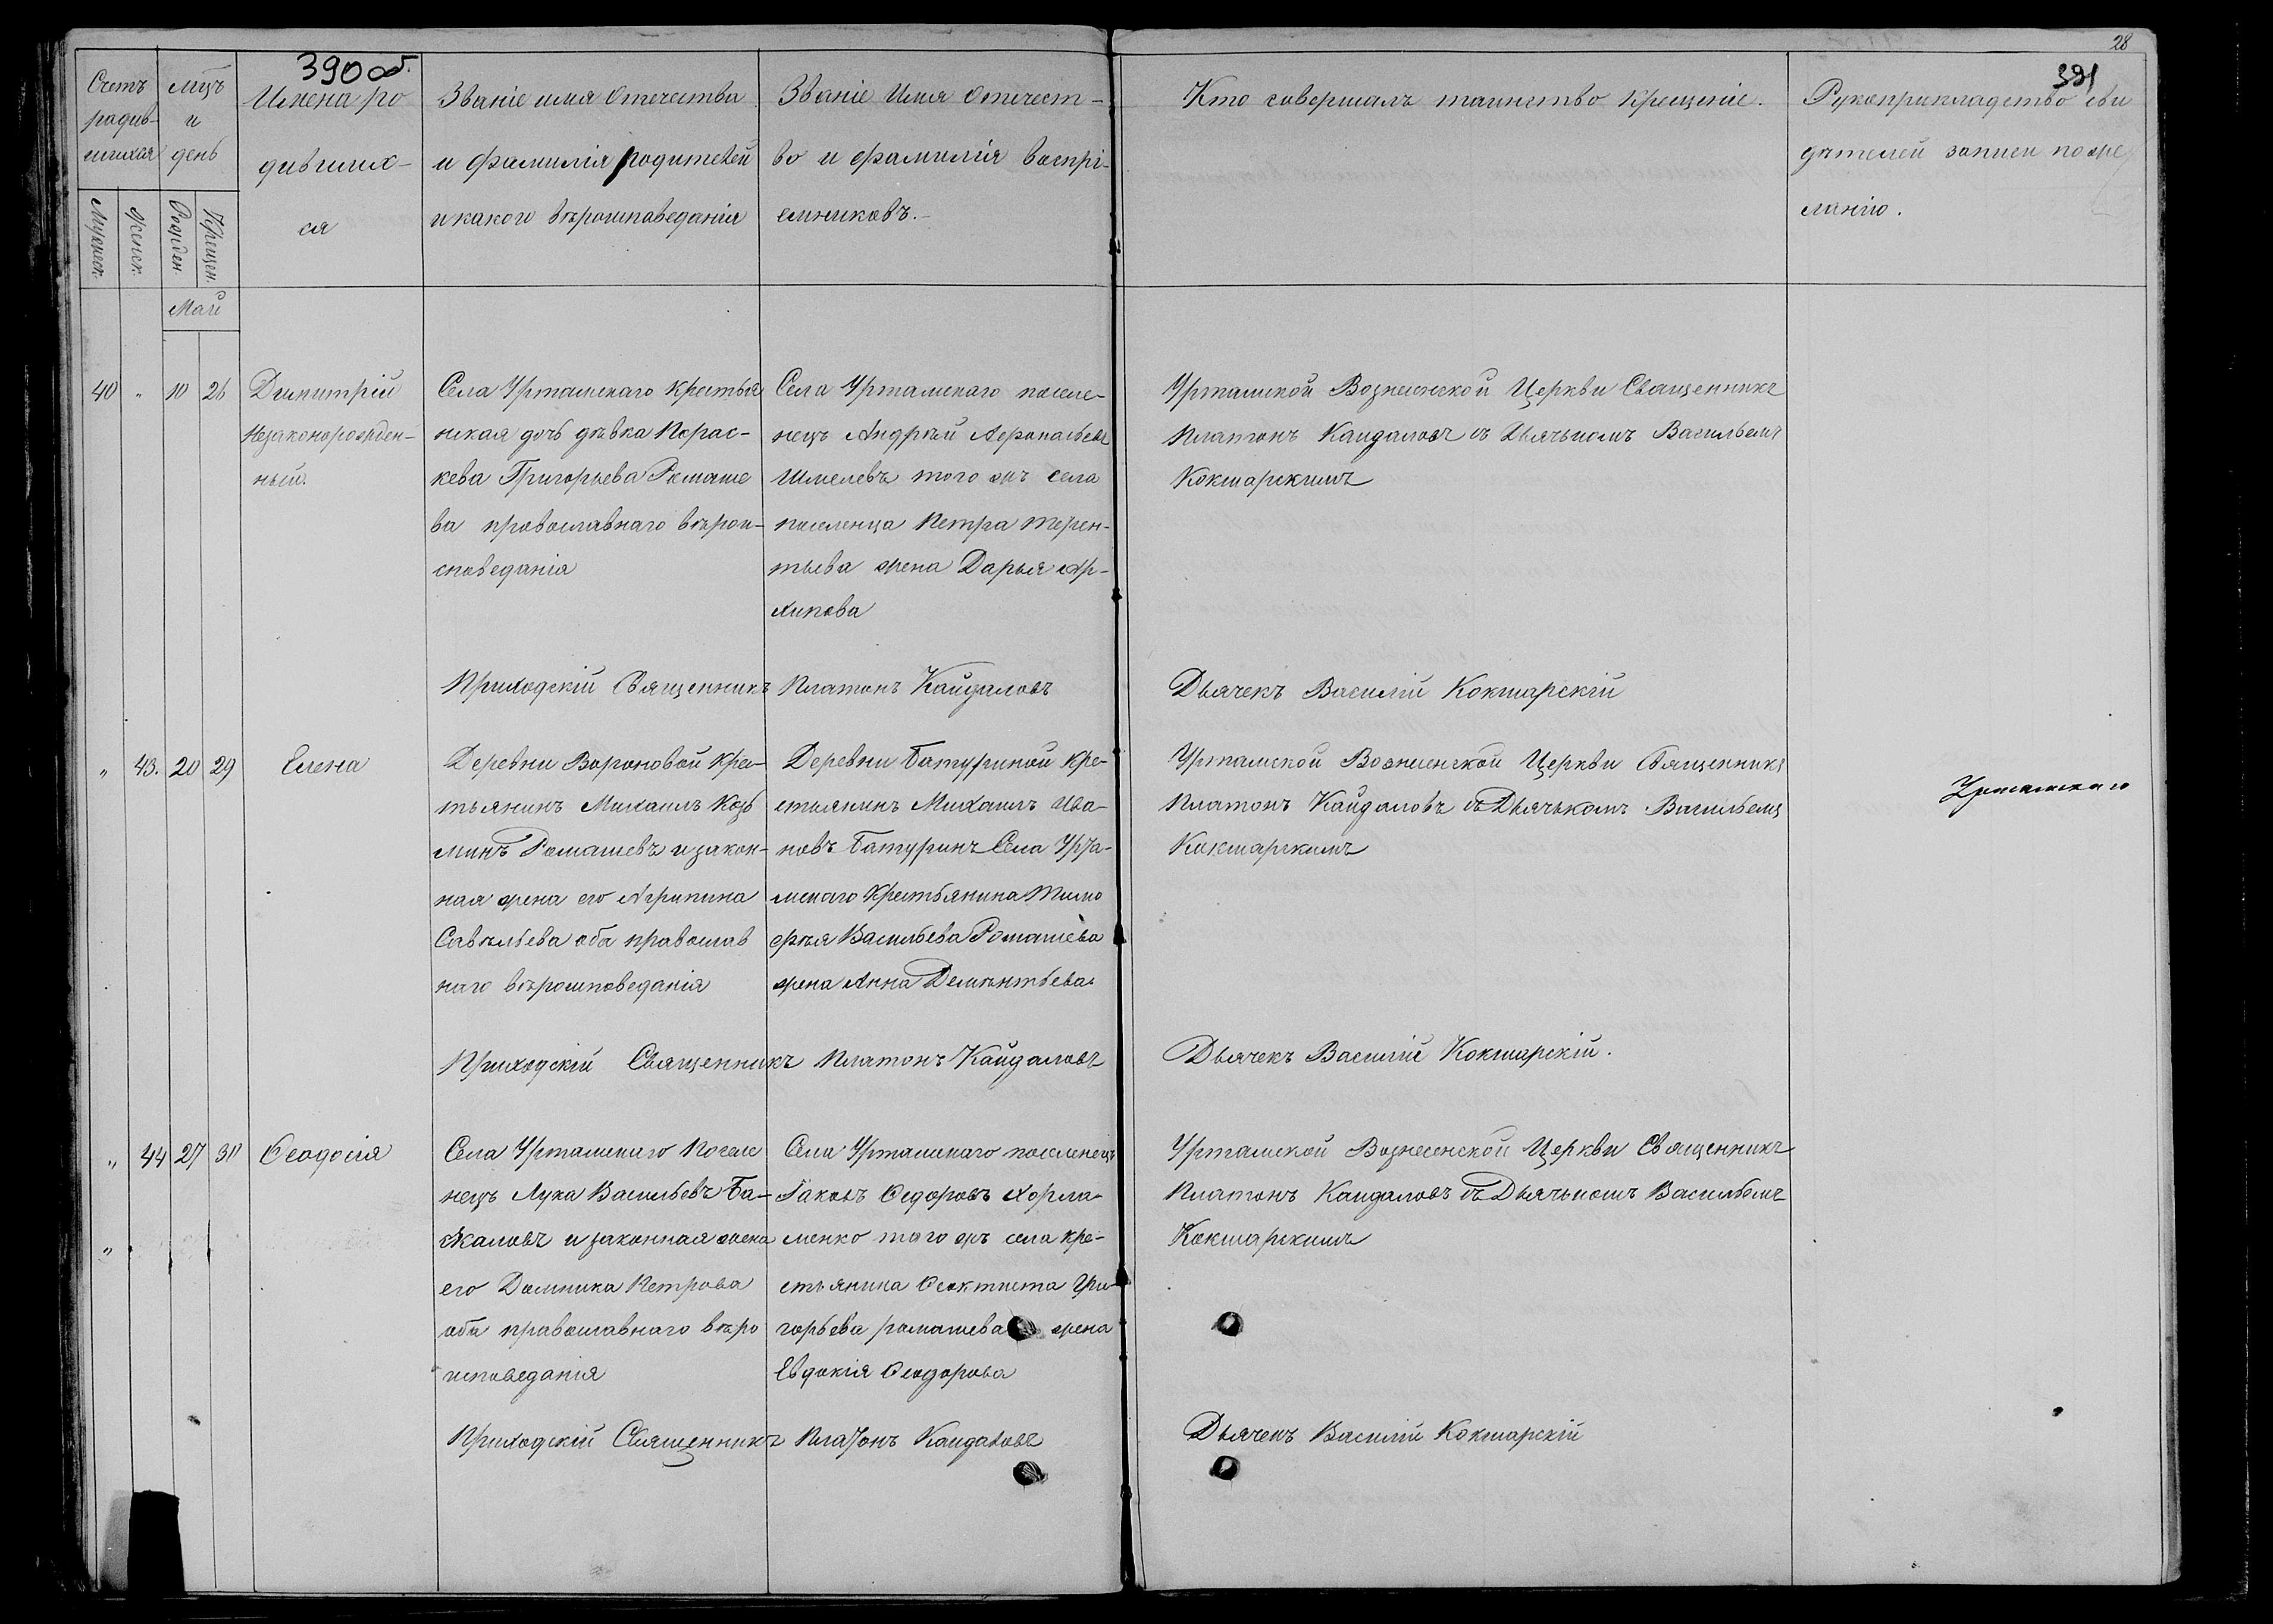 390 об.
28
391
Счетъ родив- шихся
мцъ и день
Имена ро дившихъ- ся
Званіе имя Отечества
и фамилія родителей
и какого вѣроисповеданія
Званіе Имя Отечест-
во и фамилія воспрі-
емниковъ.
Кто совершалъ таинство Крещеніе.
Рукоприкладство сви
дѣтелей записи по же
ланію.
Мужеск.
Женск.
Рожден.
Крещен.
Май
40 " 10 26
Димитрій
Незаконорожден-
ный.
Села Уртамскаго Крестья
нская дочь дѣвка Порас-
кева Григорьева Ромаше
ва православнаго вѣрои-
споведанія
Села Уртамскаго поселе-
нецъ Андрѣй
Шмелевъ того жъ села
поселенца Петра Терен-
тьева жена Дарья Ар-
хипова
Уртамской Вознесенской Церкви Священникъ
Платонъ Кайдаловъ съ Дьячькомъ Васильемъ
Кокшарскимъ
Приходскій Священникъ Платонъ Кайдаловъ
Дьячекъ Василій Кокшарскій
" 43. 20 29
Елена
Деревни Вороновой Кре-
тьянинъ Михаилъ Козь
минъ Ромашевъ и закон-
ная жена его Агрипина
Савельева оба православ
наго вѣроисповеданія
Деревни Батуриной Кре-
стьянинъ Михаилъ Ива-
новъ Батуринъ Села Урта-
мскаго Крестьянина Тимо
фѣя Васильева Ромашева
жена Анна Дементьева
Уртамской Вознесенской Церкви Священникъ
Платонъ Кайдаловъ съ Дьячькомъ Васильемъ
Кокшарскимъ
Уртамскаго
Приходскій Священникъ Платонъ Кайдаловъ
Дьячекъ Василій Кокшарскій.
" 44 27 31
Ѳеодосія
Села Уртамскаго Поселе
нецъ Лука Васильевъ Ба-
жаловъ и законная жена
его Домника Петрова
оба православнаго вѣро
исповеданія
Села Уртамскаго поселенецъ
Іаковъ Ѳедоровъ Харла-
менко того жъ села Кре-
стьянина Ѳеоктиста Гри-
горьева ромашева жена
Евдокія Ѳеодорова
Уртамской Вознесенской Церкви Священникъ
Платонъ Кайдаловъ съ Дьячькомъ Васильемъ
Кокшарскимъ
Приходскій Священникъ Платонъ Кайдаловъ
Дьячекъ Василій Кокшарскій